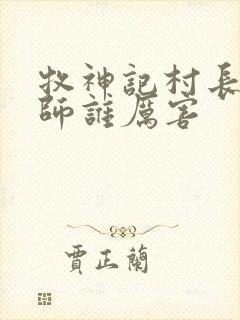 牧神記村長
師誰厲害
賈正蘭